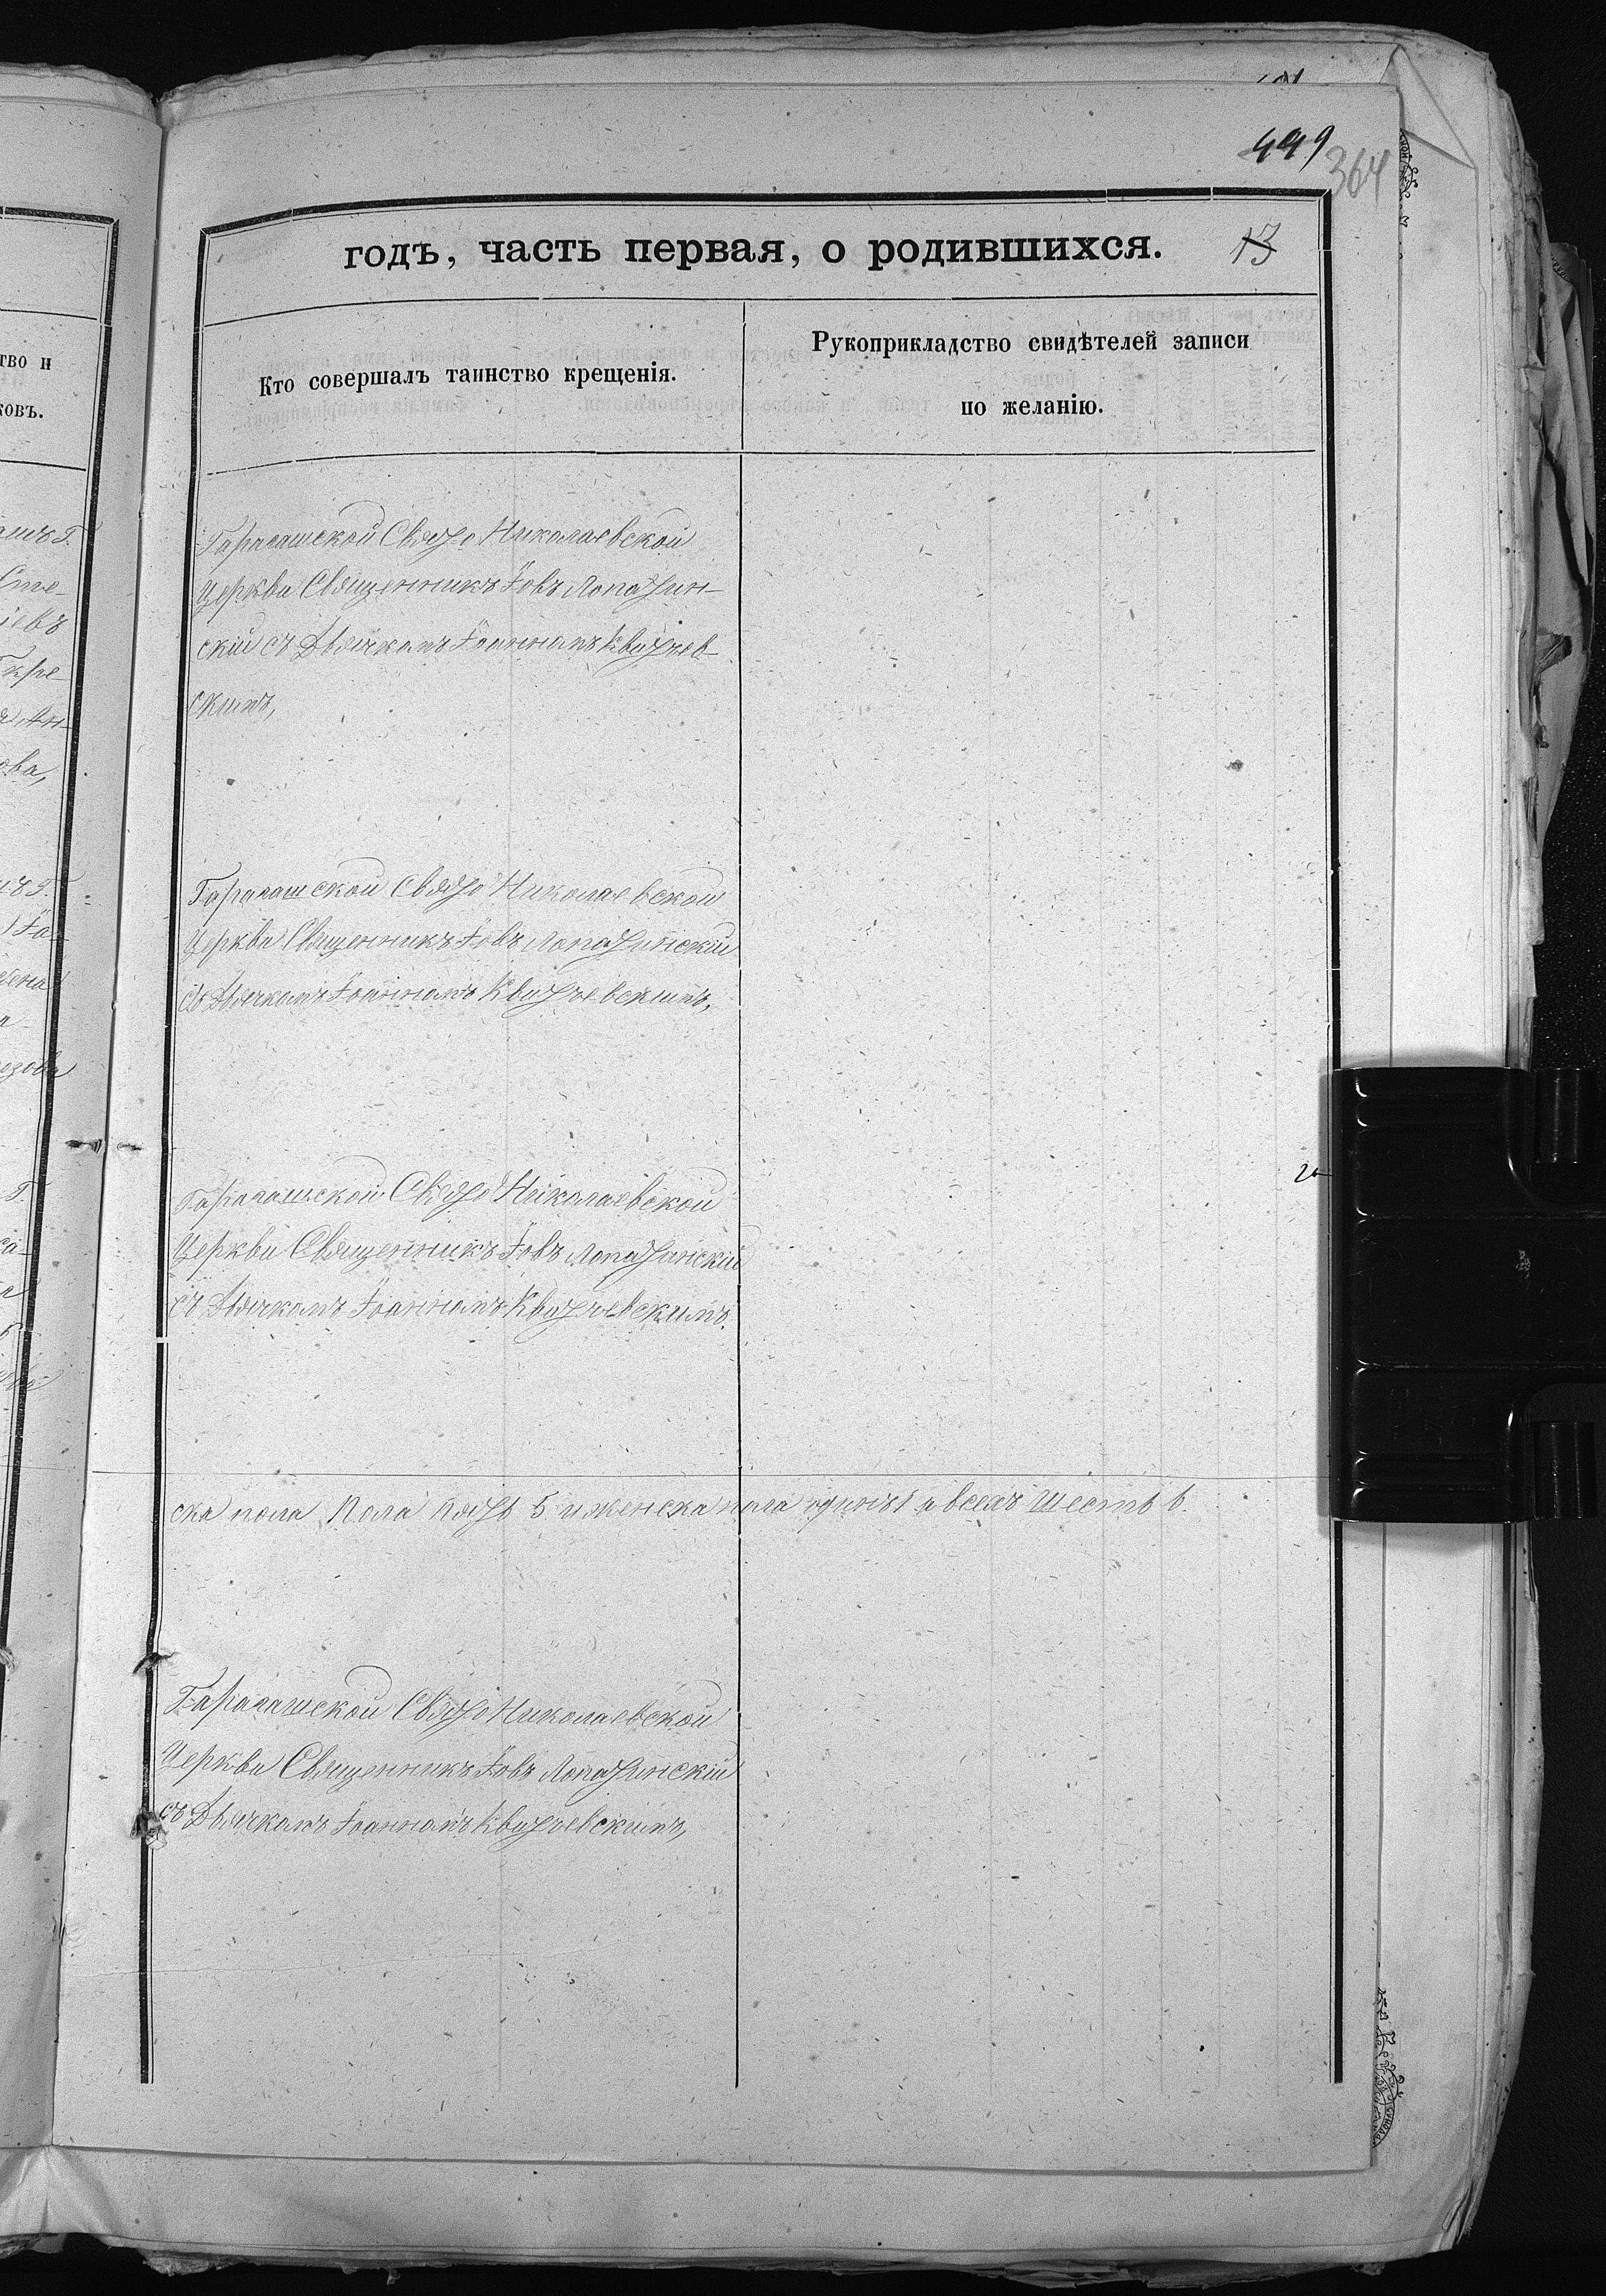 499
364
годъ, часть первая, о родившихся.
13
Кто совершалъ таинство крещенія.
Рукоприкладство свидѣтелей записи
по желанію.
тво и
ковъ.
Свято Николаевской
Церкви Священникъ Іовъ Лопатин-
скій съ Дьячкомъ Іоанномъ Квятчев-
скимъ,
Свято Николаевской
Церкви Священникъ Іовъ Лопатинскій
съ Дьячкомъ Іоанномъ Квятчевскимъ,
Свято Николаевской
Церкви Священникъ Іовъ Лопатинскій
съ Дьячкомъ Іоанномъ Квятчевскимъ.
ска пола пять 5 и женска пола одна 1 а всехъ Шесть 6.
Свято Николаевской
Церкви Священникъ Іовъ Лопатинскій
съ Дьячкомъ Іоанномъ Квятчевскимъ,